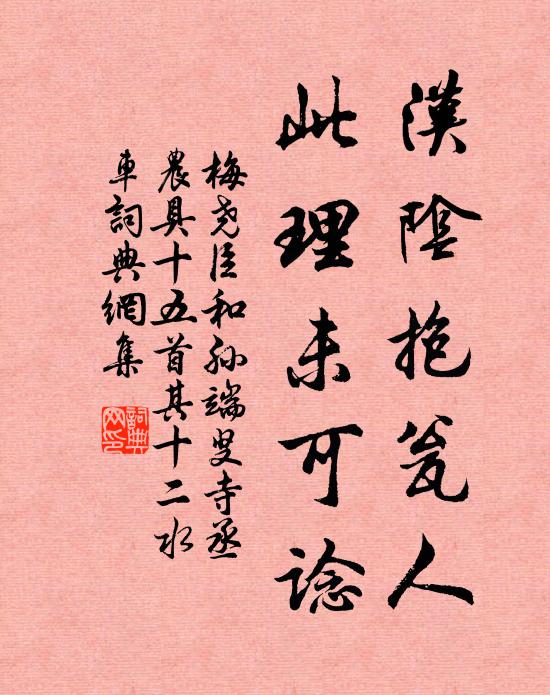 漢陰抱瓮人
此理未可諗
梅堯臣和孙端叟寺丞
農具十五首其十二水
車詞典網集
詞典网印